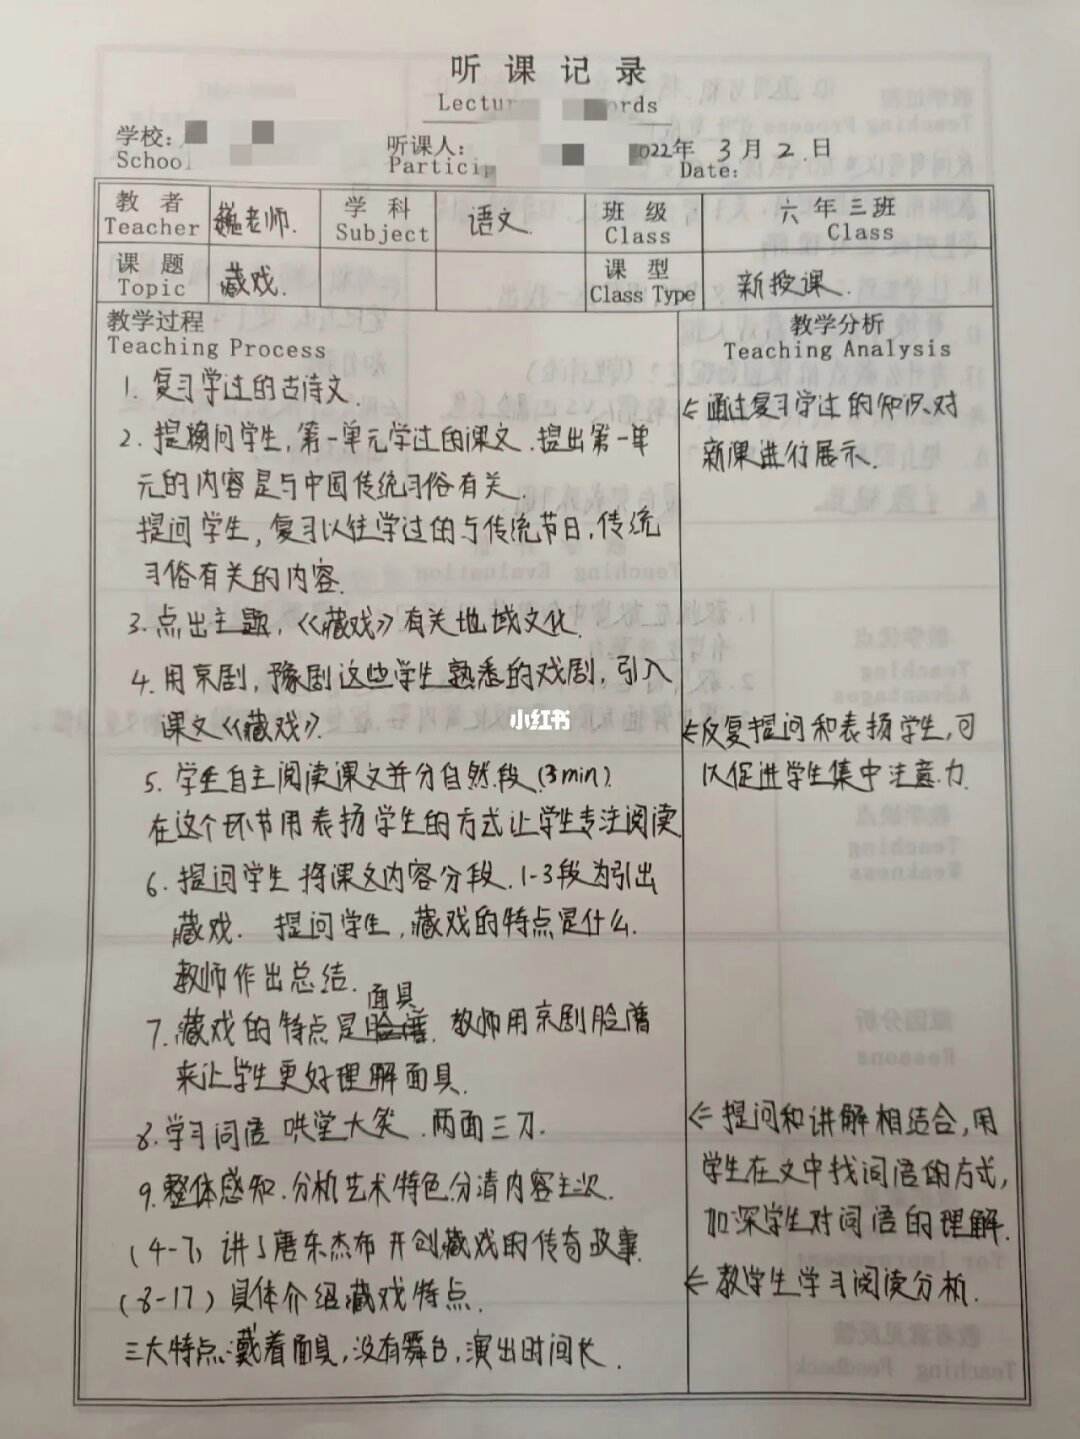 听课记录
学校:
School
听课人:
2022年 3月 2.日
Date:
教者 老师. 学科 语文. 班级 六年三班
Teacher Subject Class Class
课题 藏戏. 课型 新授课.
Topic Class Type
教学过程
Teaching Process
教学分析
Teaching Analysis
1. 复习学过的古诗文.
2. 提问学生,第一单元学过的课文.提出第一单
元的内容是与中国传统习俗有关.
提问学生,复习以往学过的与传统节日,传统
习俗有关的内容.
3.点出主题,《藏戏》有关地域文化.
4.用京剧,豫剧这些学生熟悉的戏剧,引入
课文《藏戏》.
5. 学生自主阅读课文并分自然段.(3min).
在这个环节用表扬学生的方式让学生专注阅读
6. 提问学生 将课文内容分段.1-3段为引出
藏戏. 提问学生,藏戏的特点是什么.
教师作出总结.
面具
7.藏戏的特点是脸谱.教师用京剧脸谱
来让学生更好理解面具.
8.学习词语 哄堂大笑.两面三刀.
9.整体感知.分析艺术特色.分清内容主次.
(4-7) 讲了唐东杰布开创藏戏的传奇故事.
(8-17)具体介绍藏戏特点.
三大特点:戴着面具,没有舞台,演出时间长.
←通过复习学过的知识,对
新课进行展示.
←反复提问和表扬学生,可
以促进学生集中注意力.
←提问和讲解相结合,用
学生在文中找词语的方式,
加深学生对词语的理解.
←教学生学习阅读分析.
小红书